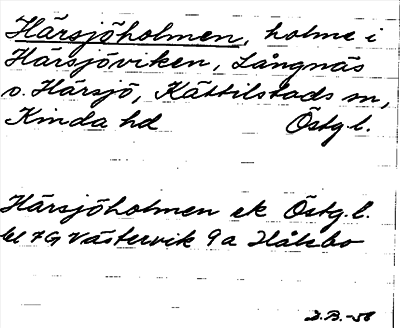 Härsjöholmen, holme i
Härsjöviken, Långnäs
o. Härsjö, Kättilstads sn,
Kinda hd Östg.l.
Härsjöholmen ek Östg.l.
bl 7G Västervik 9a Håle­bo